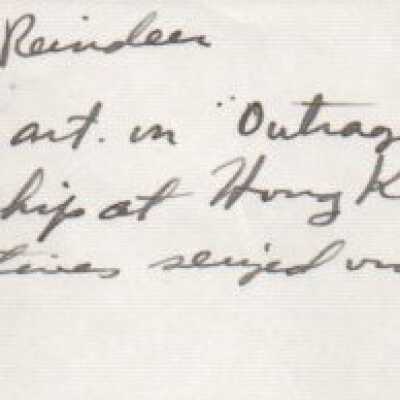 Reindeer
art. in "Outrag
hip at Hong K
tives seized on